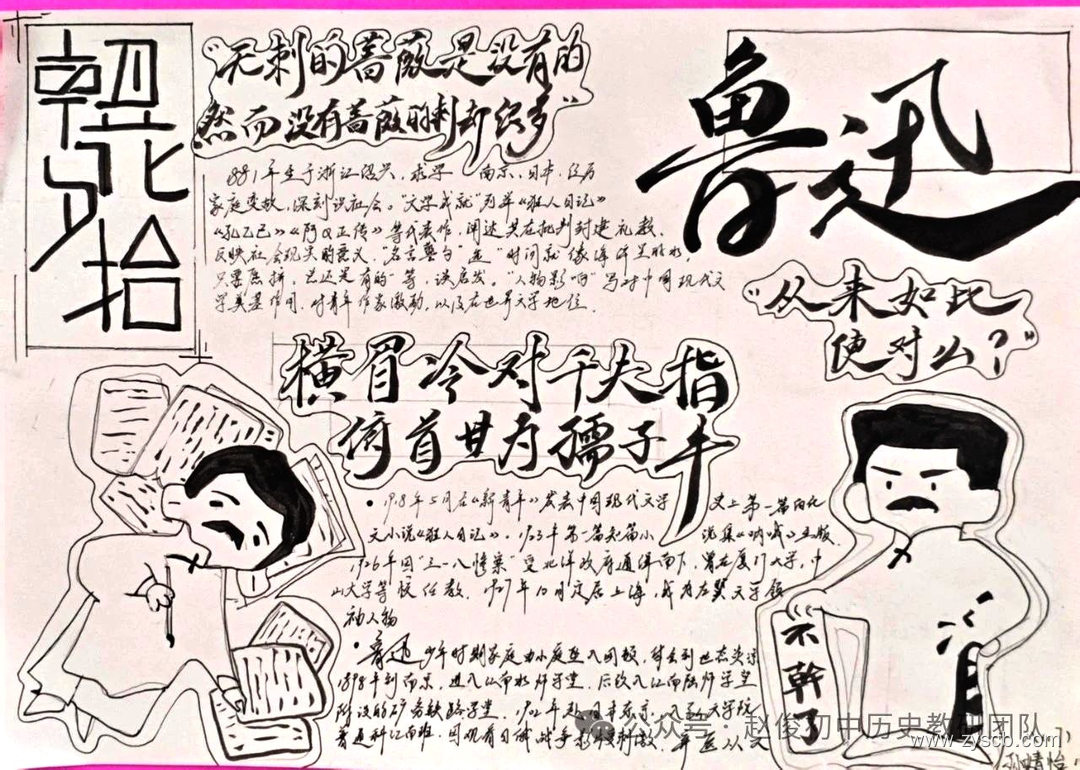 朝花夕拾
"无刺的蔷薇是没有的
然而没有蔷薇的刺却很多"
鲁迅
881年生于浙江绍兴，求学 南京，日本，经历
家庭变故，深刻识社会。"文学成就"列举《狂人日记》
《孔乙己》《阿Q正传》等代表作，阐述其在批判封建礼教、
反映社会现实的意义，"名言警句"是"时间就像海绵里的水，
只要愿挤，总还是有的"等，谈启发。"人物影响"写对中国现代文
学奠基作用，对青年作家激励，以及在世界文学地位。
"从来如此
便对么？"
横眉冷对千夫指
俯首甘为孺子牛
·1918年5月在《新青年》发表中国现代文学 史上第一篇白话
文小说《狂人日记》。1923年第一篇短篇小 说集《呐喊》出版。
1926年因"三一八惨案"受北洋政府通缉南下，曾在厦门大学，中
山大学等校任教。1927年10月定居上海，成为左翼文学领
袖人物
·鲁迅少年时期家庭由小康至入困顿，
1898年到南京，进入江南水师学堂，后改入江南陆师学堂
附设的矿务铁路学堂。1902年赴日本东京，
不幹了
公众号 赵俊初中历史教研团队
www.zysco.com
孙婧怡